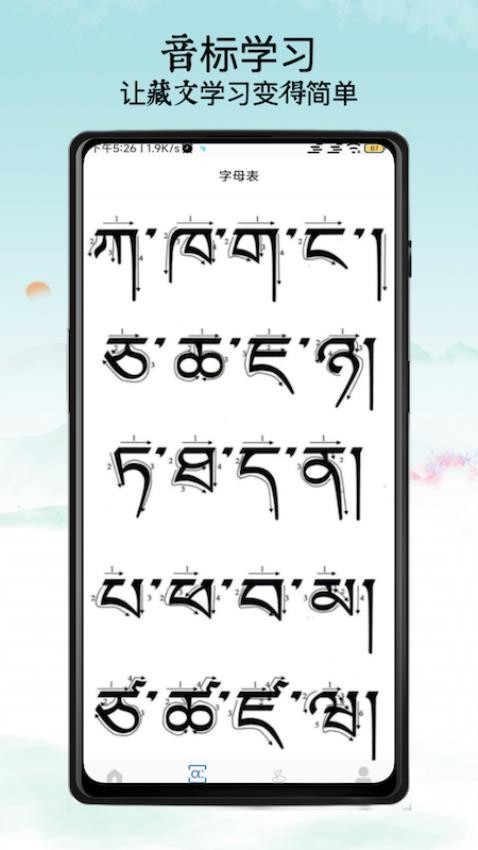 音标学习
让藏文学习变得简单
下午5:26 | 1.9K/s 87
字母表
ཀ་ཁ་ག་ང་།
ཅ་ཆ་ཇ་ཉ།
ཏ་ཐ་ད་ན།
པ་ཕ་བ་མ།
ཙ་ཚ་ཛ་ཝ།